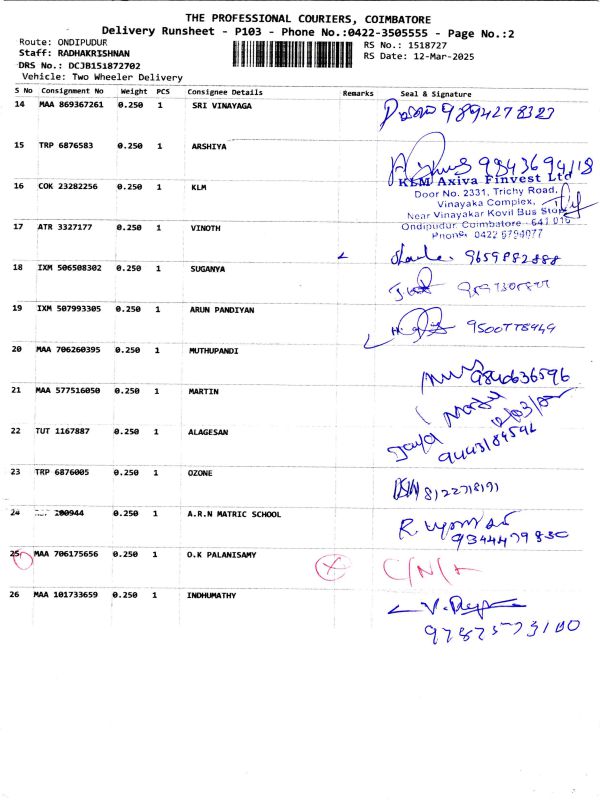 THE PROFESSIONAL COURIERS, COIMBATORE
Delivery Runsheet - P103 - Phone No.:0422-3505555 - Page No.:2
Route: ONDIPUDUR RS No.: 1518727
Staff: RADHAKRISHNAN RS Date: 12-Mar-2025
DRS No.: DCJB151872702
Vehicle: Two Wheeler Delivery
S No Consignment No Weight PCS Consignee Details Remarks Seal & Signature
14 MAA 869367261 0.250 1 SRI VINAYAGA 9894278323
15 TRP 6876583 0.250 1 ARSHIYA
16 COK 23282256 0.250 1 KLM
KLM Axiva Finvest Ltd
Door No. 2331, Trichy Road,
Vinayaka Complex,
Near Vinayakar Kovil Bus Stop
Ondipudur Coimbatore - 641 016
Phone: 0422 6794077
17 ATR 3327177 0.250 1 VINOTH 9659882888
18 IXM 506508302 0.250 1 SUGANYA
19 IXM 507993305 0.250 1 ARUN PANDIYAN 9500778949
20 MAA 706260395 0.250 1 MUTHUPANDI 9840636596
21 MAA 577516050 0.250 1 MARTIN
22 TUT 1167887 0.250 1 ALAGESAN Jaya
9443184596
23 TRP 6876005 0.250 1 OZONE 8122718191
24 0.250 1 A.R.N MATRIC SCHOOL
9344479830
25 MAA 706175656 0.250 1 O.K PALANISAMY X C/N/A
26 MAA 101733659 0.250 1 INDHUMATHY